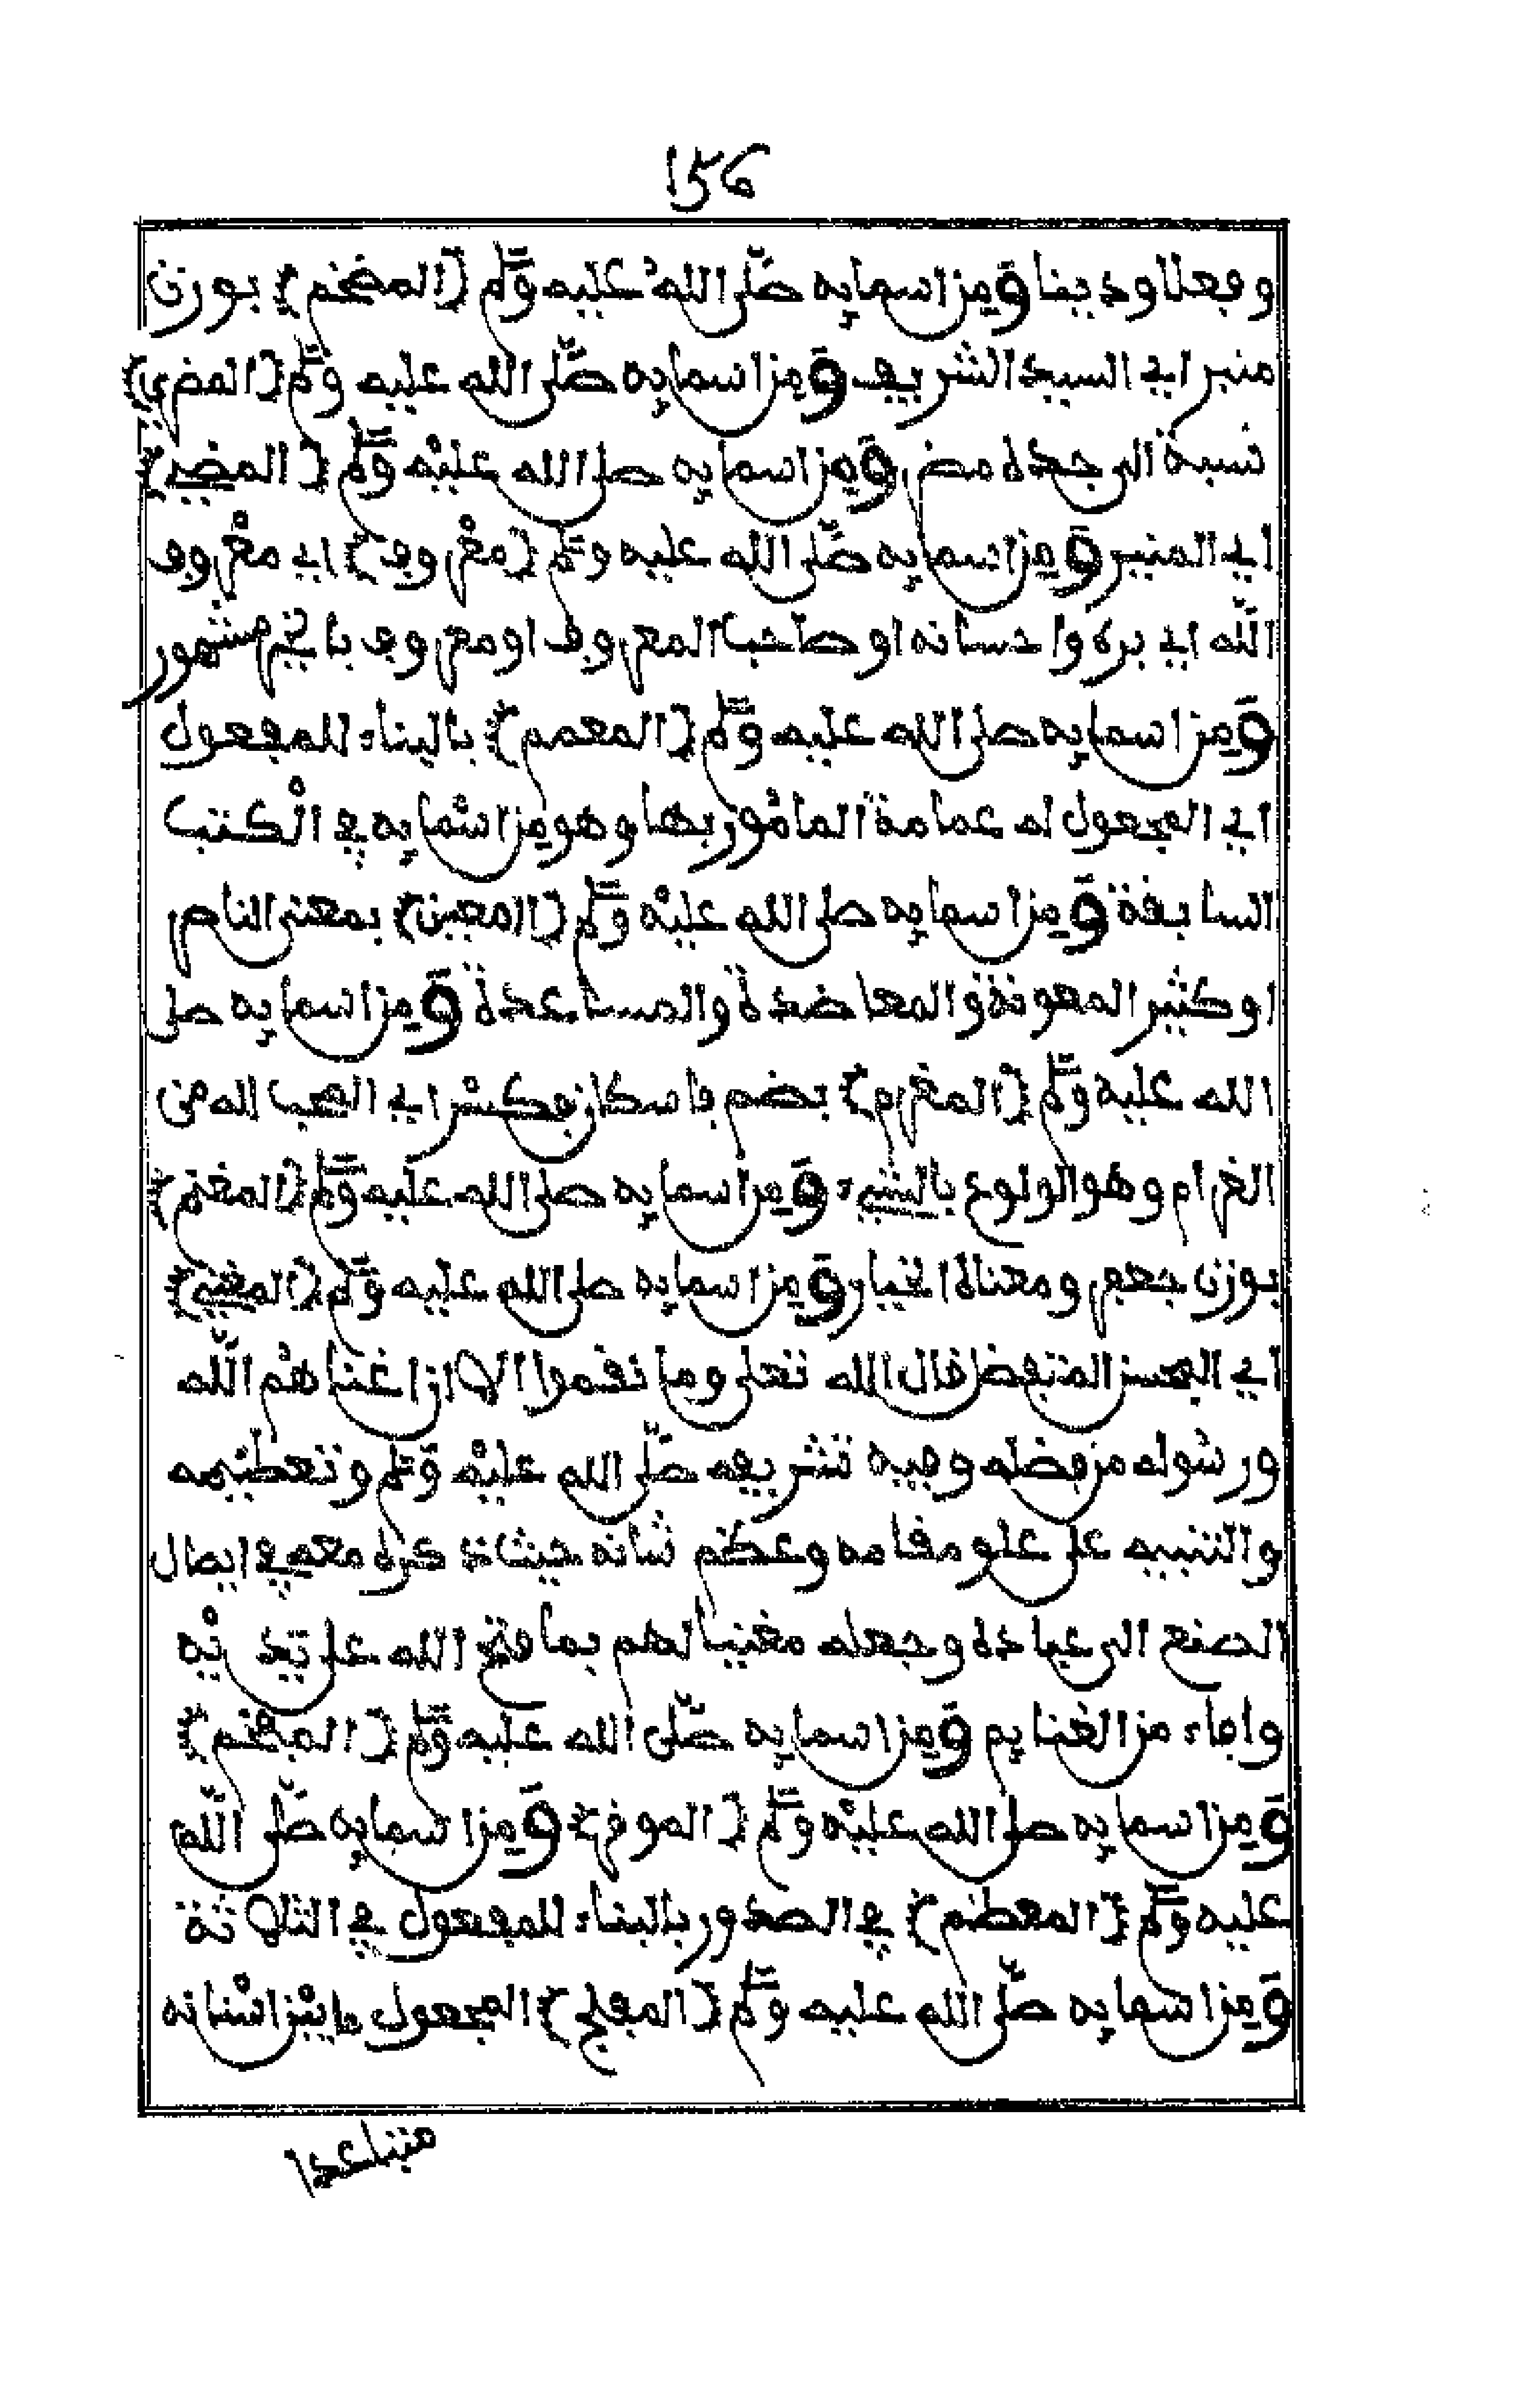 156
وفعلا ودينا ومن اسمايه صلى الله عليه وسلم (المضخم) بوزن
منبر اي السيد الشريف ومن اسمايه صلى الله عليه وسلم (المضري)
نسبة الى جده مضر ومن اسمايه صلى الله عليه وسلم (المضيء)
اي المنير ومن اسمايه صلى الله عليه وسلم (معروف) اي معروف
الله اي بره واحسانه او صاحب المعروف او معروف بالخير مشهور
ومن اسمايه صلى الله عليه وسلم (المعمم) بالبناء للمفعول
اي المجعول له عمامة المامور بها وهو من اسمايه في الكتب
السابقة ومن اسمايه صلى الله عليه وسلم (المعين) بمعنى الناصر
او كثير المعونة والمعاضدة والمساعدة ومن اسمايه صلى
الله عليه وسلم (المغرم) بضم فاسكان فكسر اي المحب لله من
الغرام وهو الولوع بالشيء ومن اسمايه صلى الله عليه وسلم (المغنم)
بوزن جعفر ومعناه الخيار ومن اسمايه صلى الله عليه وسلم (المغني)
اي المحسن المتفضل قال الله تعلى وما نقموا الا ان اغناهم الله
ورسوله من فضله وفيه تشريفه صلى الله عليه وسلم وتعظيمه
والتنبيه على علو مقامه وعظم شانه حيث ذكره معه في ايصال
الصنع الى عباده وجعله مغنيا لهم بما فتح الله على يديه
وافاء من الغنايم ومن اسمايه صلى الله عليه وسلم (المفخم)
ومن اسمايه صلى الله عليه وسلم (الموفر) ومن اسمايه صلى الله
عليه وسلم (المعظم) في الصدور بالبناء للمفعول في الثلاثة
ومن اسمايه صلى الله عليه وسلم (المفلج) المجعول ما بين اسنانه
متباعدا